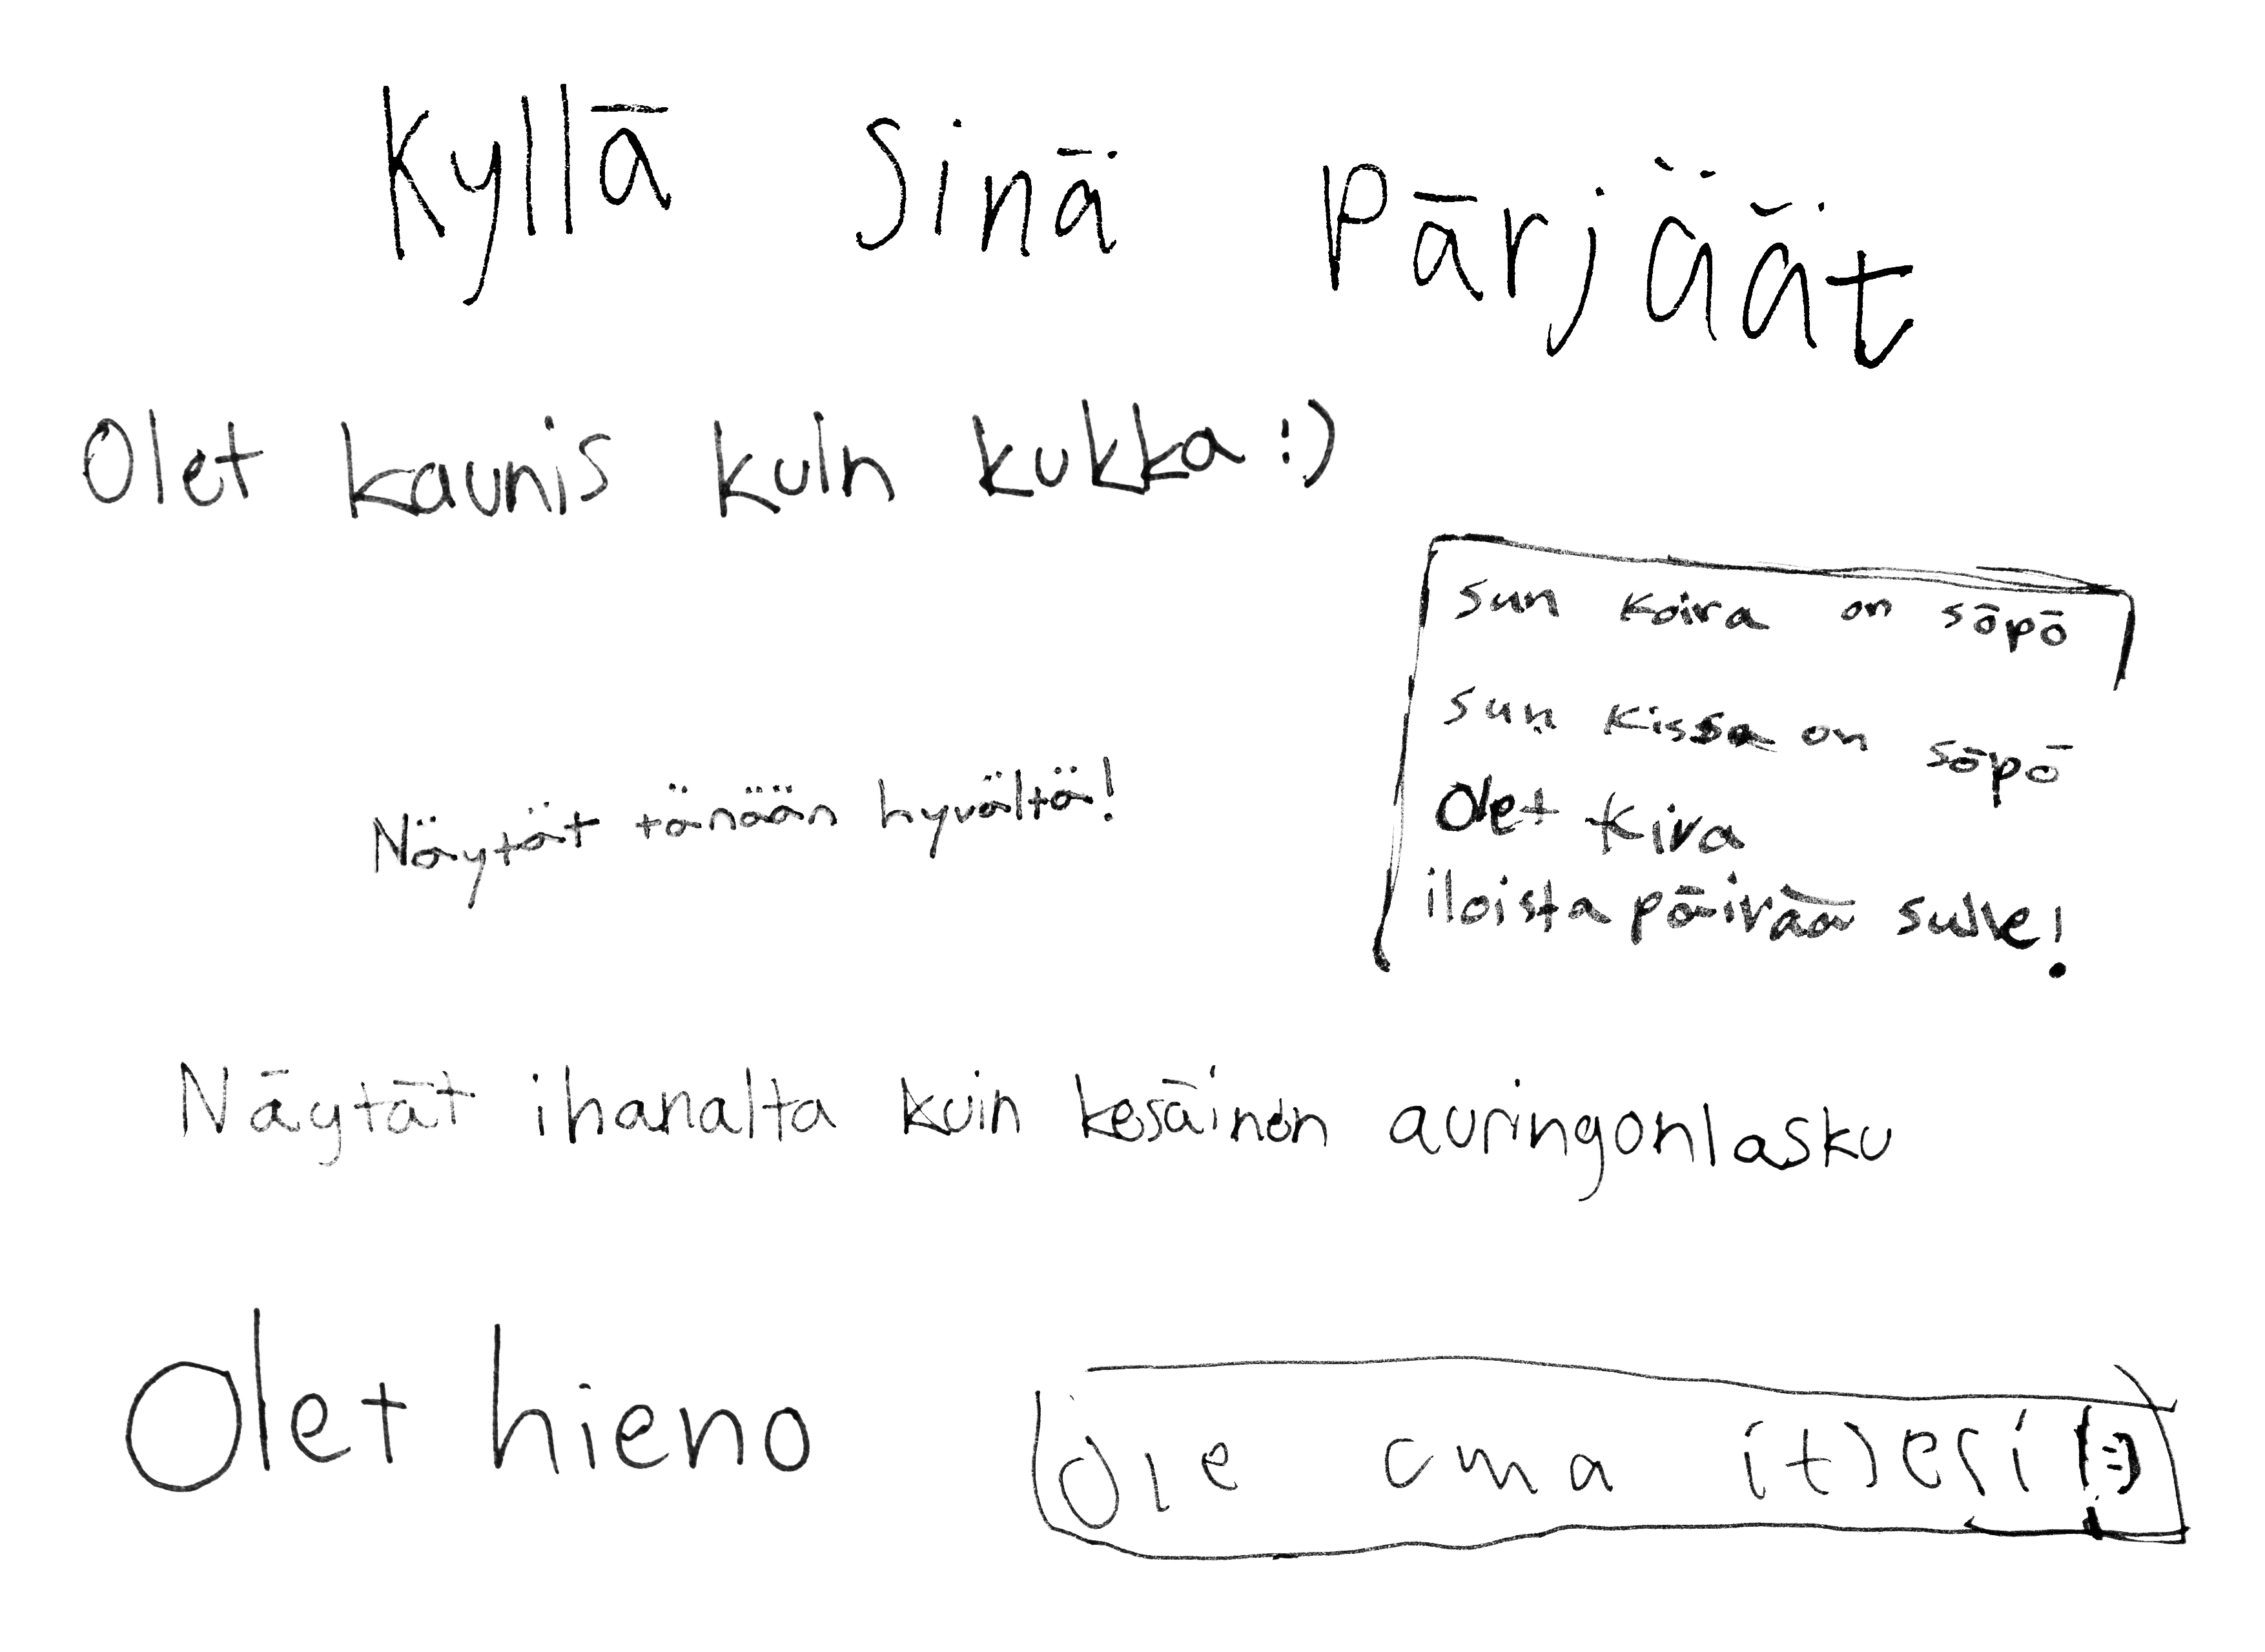 Kyllä Sinä Pärjäät
Olet kaunis kuin kukka :)
sun koira on söpö
sun kissa on söpö
Näytät tänään hyvältä!
Olet kiva
iloista päivää sulle!
Näytät ihanalta kuin kesäinen auringonlasku
Olet hieno
Ole oma itsesi! :)